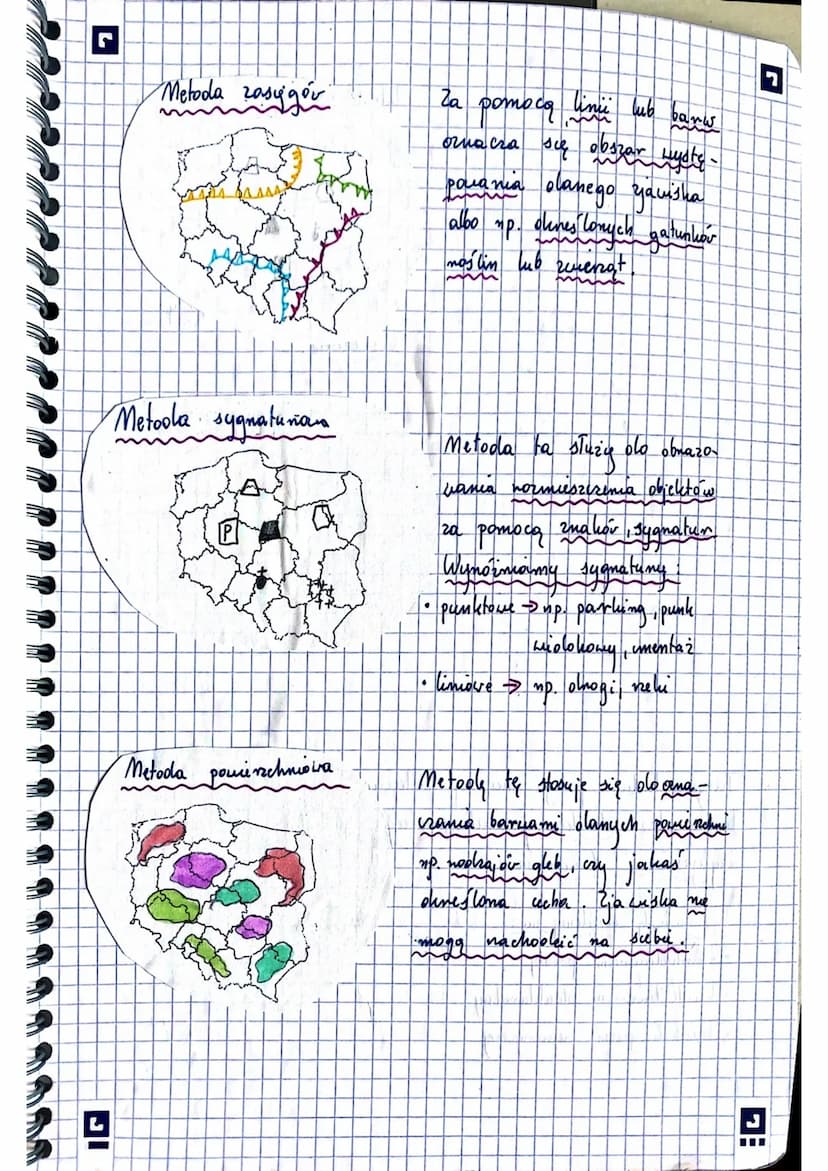 Metoda zasięgów
Za pomocą linii lub barw
oznacza się obszar wystę-
powania danego zjawiska
albo np. określonych gatunków
roślin lub zwierząt.
Metoda sygnaturowa
Metoda ta służy do obrazo-
wania rozmieszczenia objektów
za pomocą znaków, sygnatur
Wyróżniamy sygnatury:
P
• punktowe → np. parking, punk
widokowy, cmentaż
• liniowe → np. drogi, rzeki
Metoda powierzchniowa
Metodę tę stosuje się do ozna-
czania barwami danych powierzchni
np. rodzajów gleb, czy jakaś
określona cecha. Zjawiska nie
mogą nachodzić na siebie.